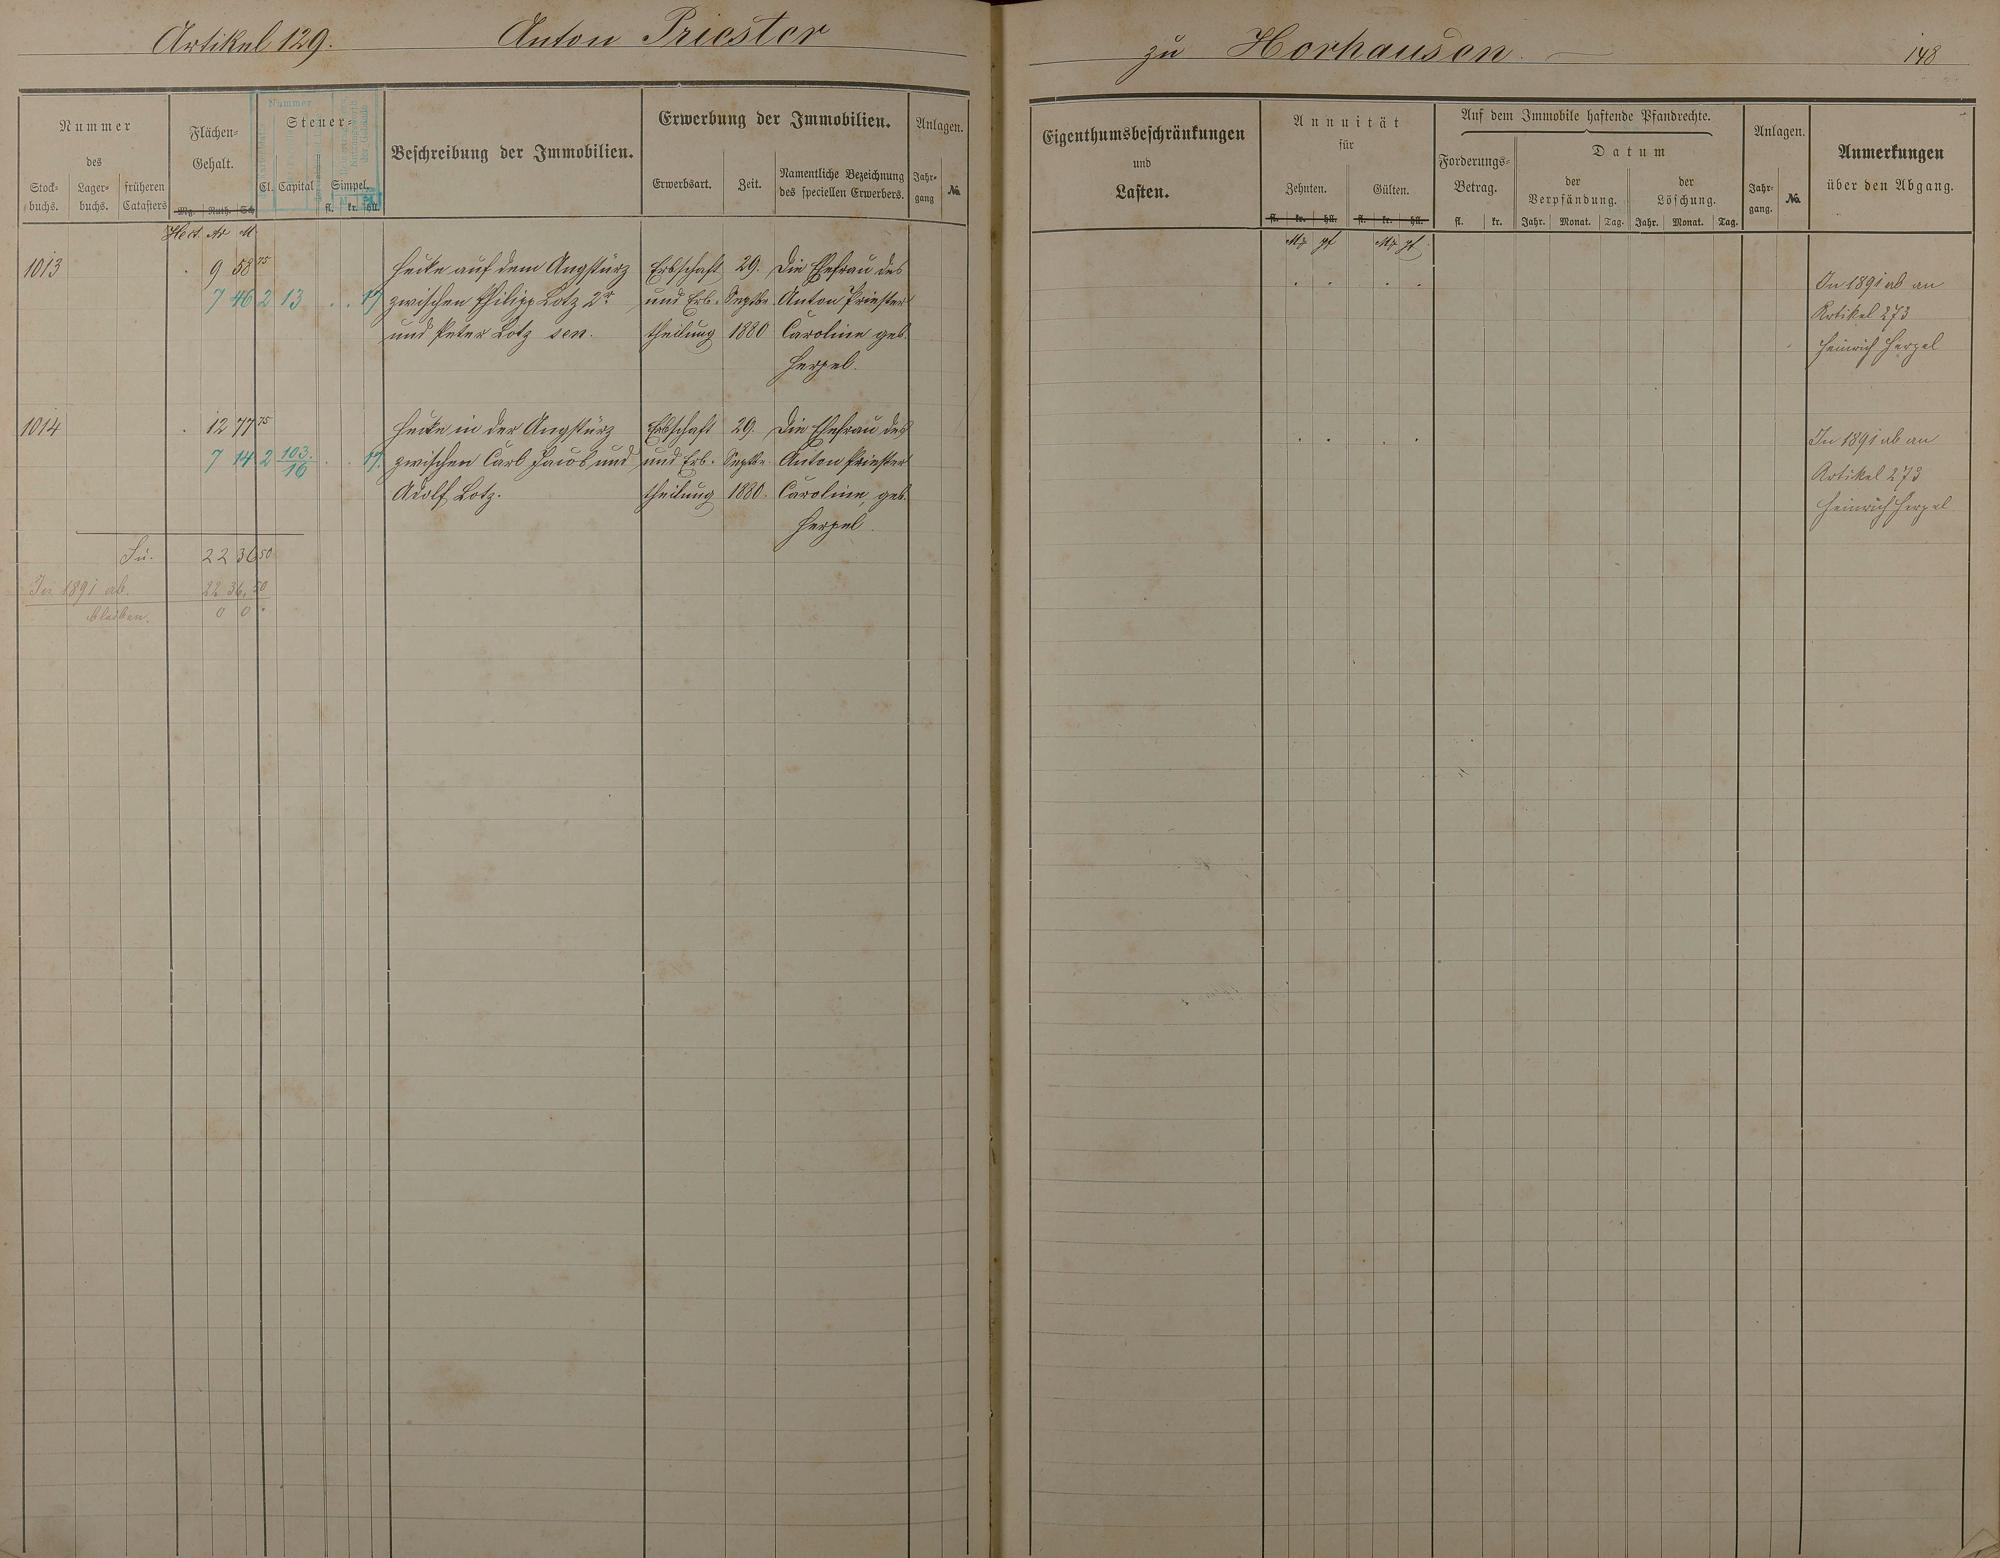 Artikel 129. Anton Priester
zu Horhausen.
148
Nummer
des
Stock-
buchs.
Lager-
buchs.
früheren
Catasters
Flächen-
Gehalt.
Mg. Ruth. Sch.
Hect. Ar M.
Nummer
Steuer-
Cl. Capital
Simpel.
fl. kr. hll.
Beschreibung der Immobilien.
Erwerbung der Immobilien.
Erwerbsart.
Zeit.
Namentliche Bezeichnung
des speciellen Erwerbers.
Anlagen.
Jahr-
gang
No.
1013
9 58 75
Hecke auf dem Angstürz Erbschaft 29. Die Ehefrau des
7 46 2 13 . . 17 zwischen Philipp Lotz 2r und Erb- Septbr. Anton Priester
und Peter Lotz sen. theilung 1880 Caroline geb.
Herpel.
1014
12 77 75
Hecke in der Angstürz Erbschaft 29. Die Ehefrau des
7 14 2 103/16 . . 17. zwischen Carl Jacob und und Erb- Septbr. Anton Priester
Adolf Lotz. theilung 1880. Caroline, geb.
Herpel.
Su. 22 36 50
In 1891 ab. 22 36,50
bleiben. 0 0 .
Eigenthumsbeschränkungen
und
Lasten.
Annuität
für
Zehnten.
fl. kr. hll.
Gülten.
fl. kr. hll.
Mk pf Mk pf
Auf dem Immobile haftende Pfandrechte.
Forderungs-
Betrag.
fl. kr.
Datum
der
Verpfändung.
Jahr. Monat. Tag.
der
Löschung.
Jahr. Monat. Tag.
Anlagen.
Jahr-
gang.
No.
Anmerkungen
über den Abgang.
In 1891 ab an
Artikel 273
Heinrich Herpel
In 1891 ab an
Artikel 273
Heinrich Herpel